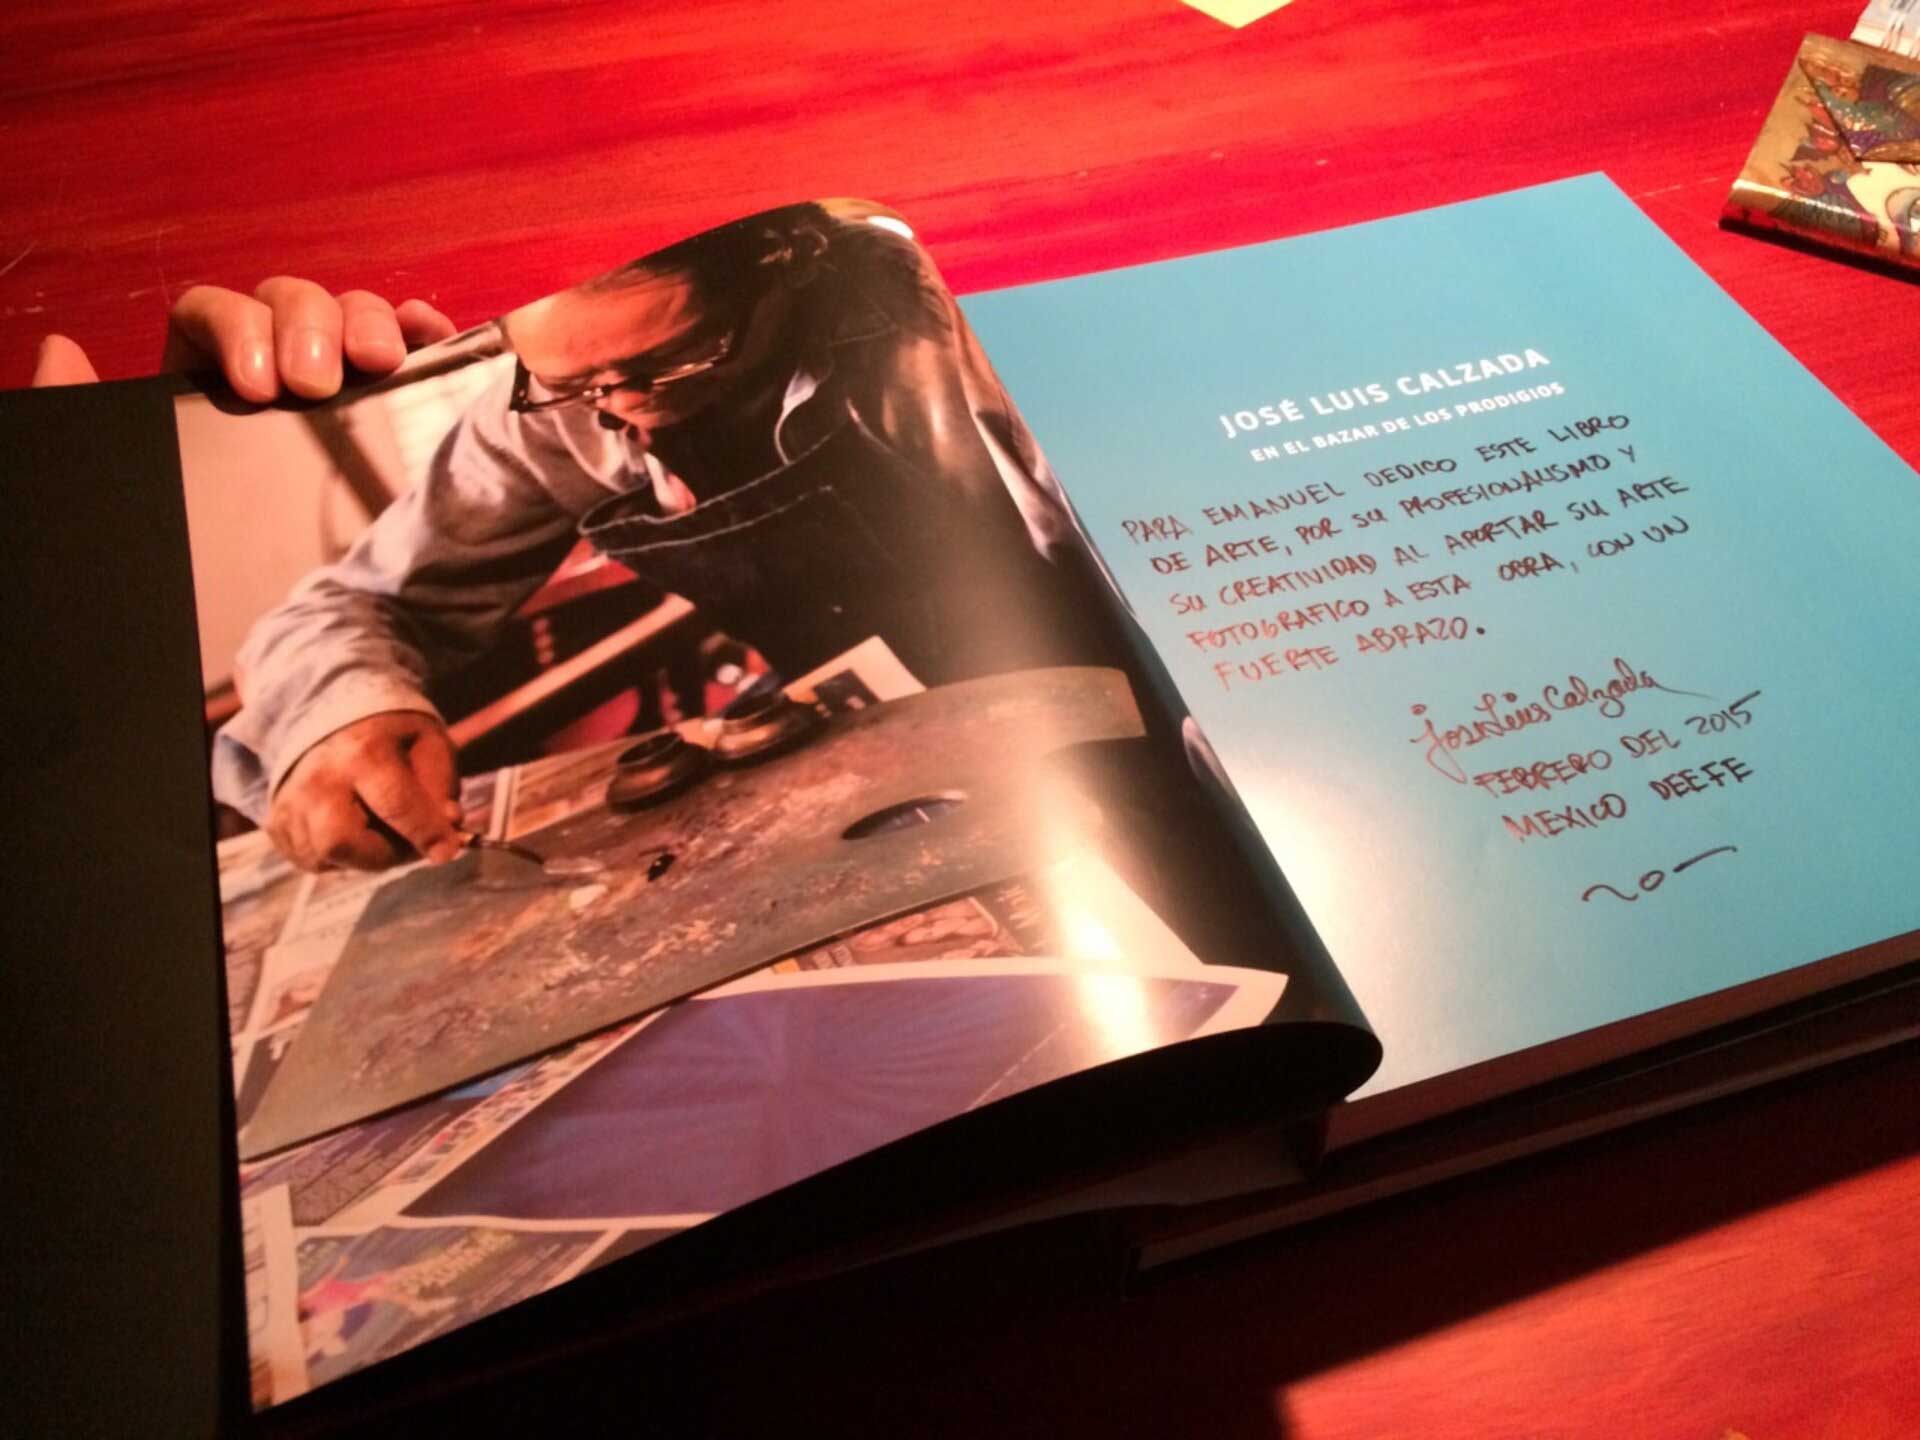 JOSÉ LUIS CALZADA
EN EL BAZAR DE LOS PRODIGIOS
PARA EMANUEL DEDICO ESTE LIBRO
DE ARTE, POR SU PROFESIONALISMO Y
SU CREATIVIDAD AL APORTAR SU ARTE
FOTOGRAFICO A ESTA OBRA, CON UN
FUERTE ABRAZO.
José Luis Calzada
FEBRERO DEL 2015
MEXICO DEEFE